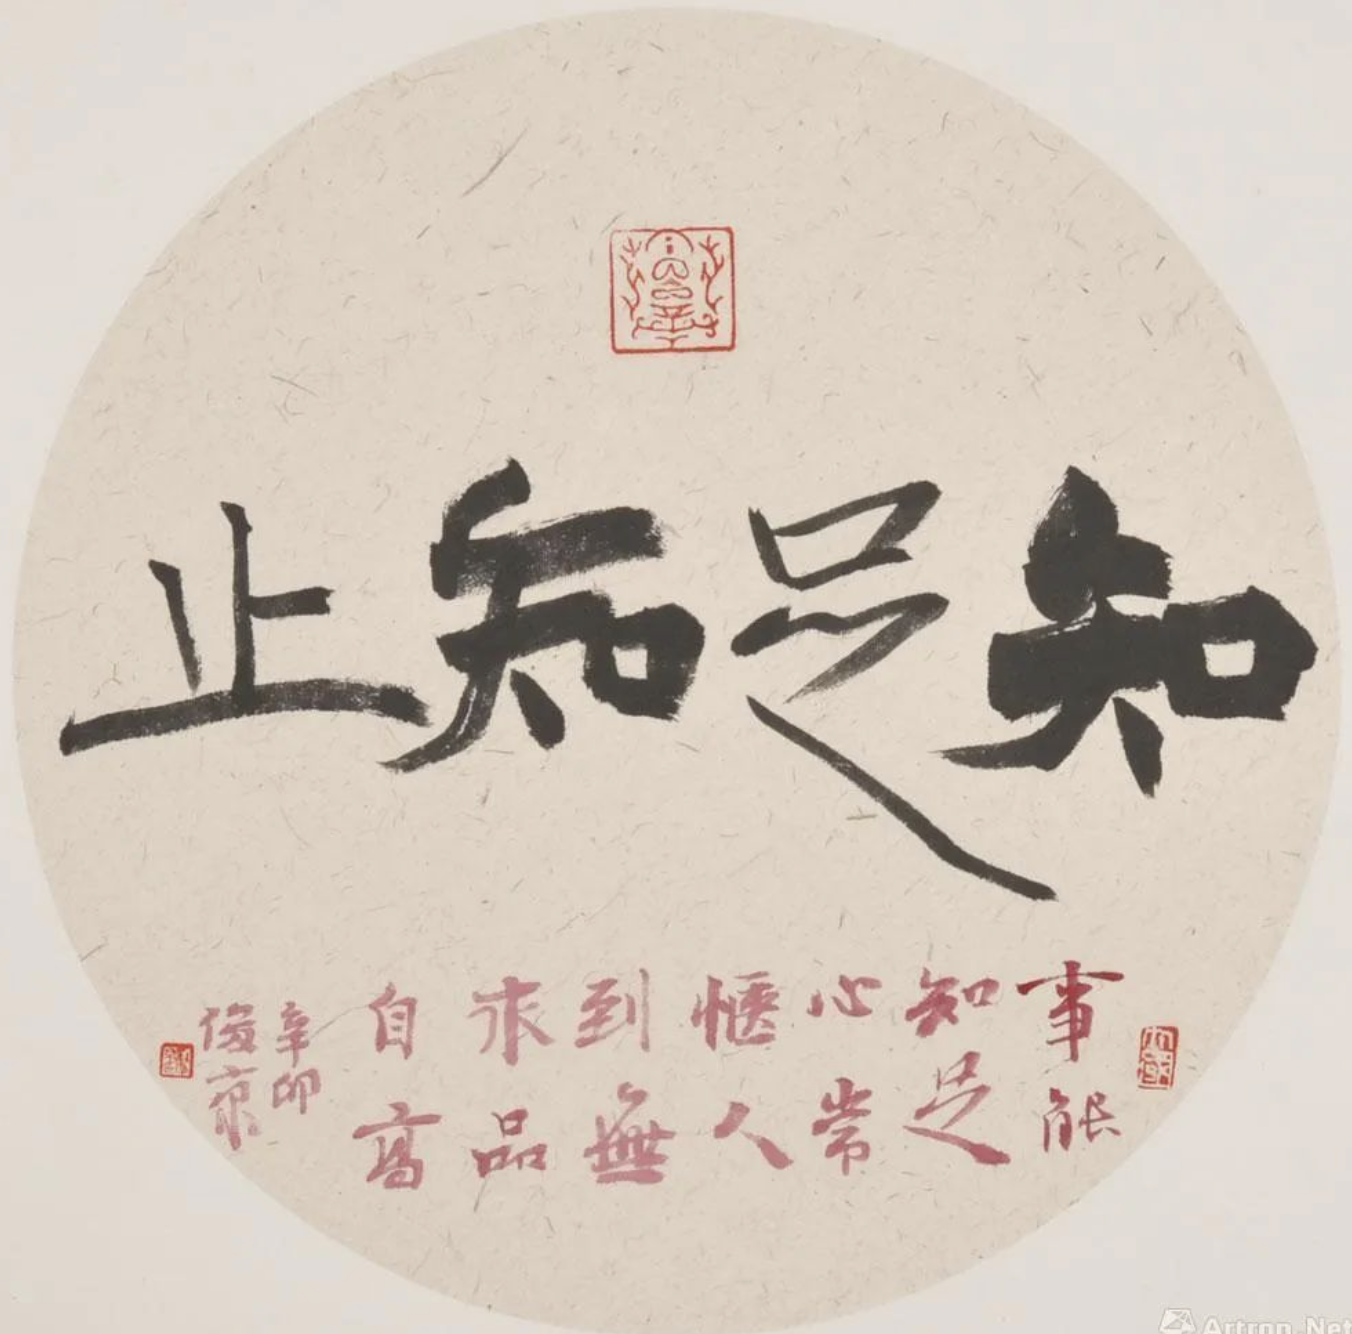 知足知止
事能知足心常惬
人到無求品自高
辛卯
俊京
Artron.Net